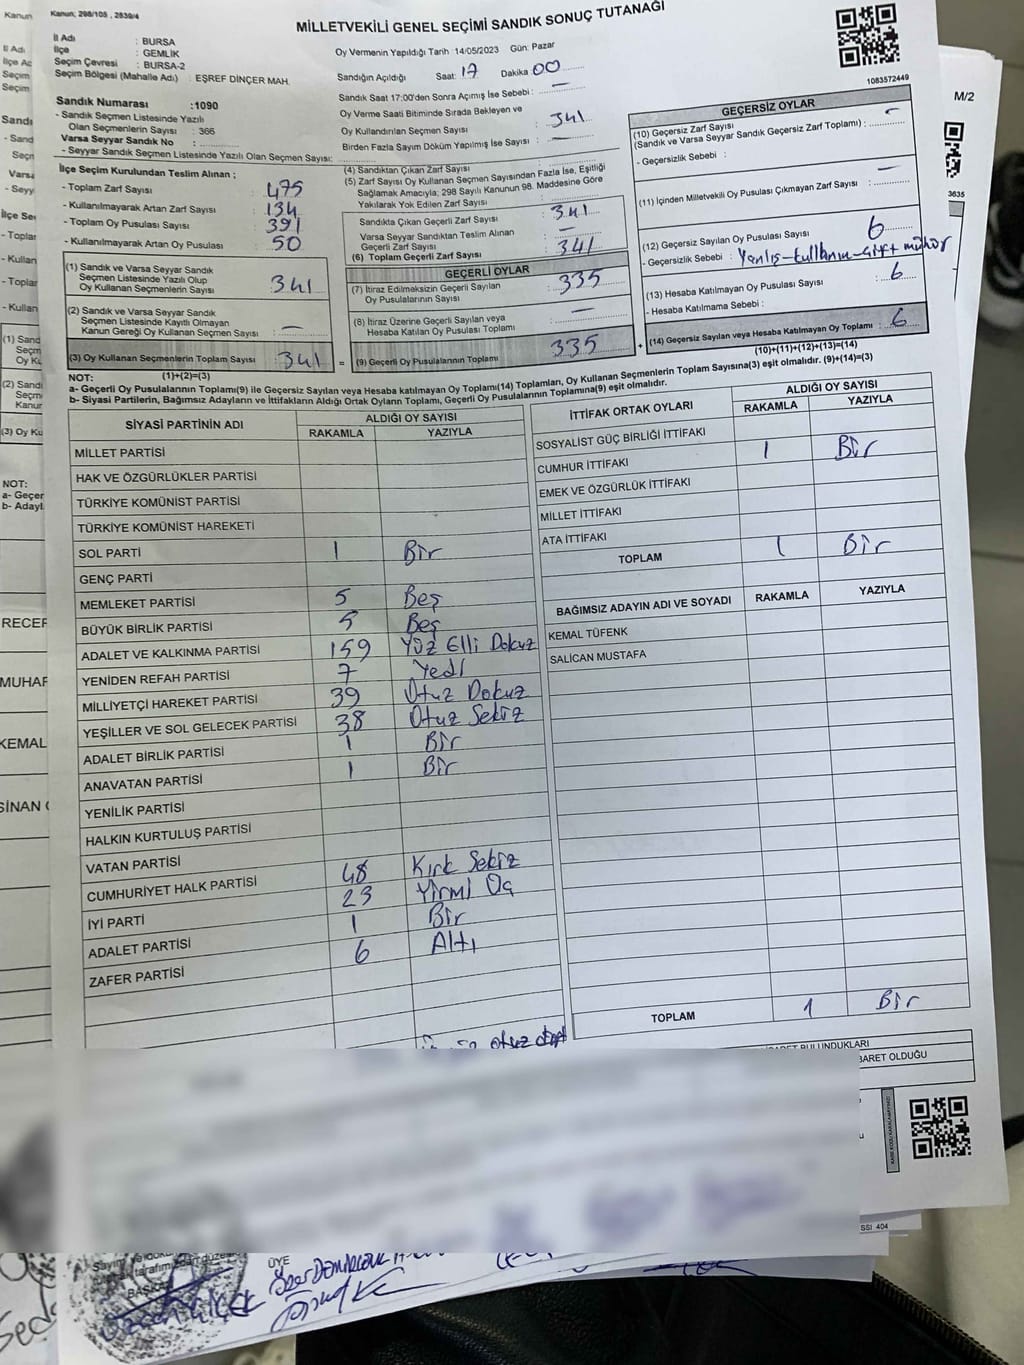 Kanun; 298/105 , 2839/4
MİLLETVEKİLİ GENEL SEÇİMİ SANDIK SONUÇ TUTANAĞI
İl Adı : BURSA
İlçe : GEMLİK
Seçim Çevresi : BURSA-2
Seçim Bölgesi (Mahalle Adı) : EŞREF DİNÇER MAH.
Oy Vermenin Yapıldığı Tarih 14/05/2023 Gün: Pazar
Sandığın Açıldığı Saat: 17 Dakika 00
Sandık Saat 17:00'den Sonra Açımış İse Sebebi : —
Oy Verme Saati Bitiminde Sırada Bekleyen ve
Oy Kullandırılan Seçmen Sayısı : 341
Birden Fazla Sayım Döküm Yapılmış İse Sayısı : —
1083572449
M/2
Sandık Numarası :1090
- Sandık Seçmen Listesinde Yazılı
Olan Seçmenlerin Sayısı : 366
Varsa Seyyar Sandık No :
- Seyyar Sandık Seçmen Listesinde Yazılı Olan Seçmen Sayısı:
İlçe Seçim Kurulundan Teslim Alınan ;
- Toplam Zarf Sayısı : 475
- Kullanılmayarak Artan Zarf Sayısı : 134
- Toplam Oy Pusulası Sayısı : 391
- Kullanılmayarak Artan Oy Pusulası : 50
(1) Sandık ve Varsa Seyyar Sandık
Seçmen Listesinde Yazılı Olup
Oy Kullanan Seçmenlerin Sayısı : 341
(2) Sandık ve Varsa Seyyar Sandık
Seçmen Listesinde Kayıtlı Olmayan
Kanun Gereği Oy Kullanan Seçmen Sayısı : —
(3) Oy Kullanan Seçmenlerin Toplam Sayısı : 341
(1)+(2)=(3)
(4) Sandıktan Çıkan Zarf Sayısı :
(5) Zarf Sayısı Oy Kullanan Seçmen Sayısından Fazla İse, Eşitliği
Sağlamak Amacıyla; 298 Sayılı Kanunun 98. Maddesine Göre
Yakılarak Yok Edilen Zarf Sayısı :
Sandıkta Çıkan Geçerli Zarf Sayısı : 341
Varsa Seyyar Sandıktan Teslim Alınan
Geçerli Zarf Sayısı : —
(6) Toplam Geçerli Zarf Sayısı : 341
GEÇERLİ OYLAR
(7) İtiraz Edilmeksizin Geçerli Sayılan
Oy Pusulalarının Sayısı : 335
(8) İtiraz Üzerine Geçerli Sayılan veya
Hesaba Katılan Oy Pusulası Toplamı : —
= (9) Geçerli Oy Pusulalarının Toplamı : 335
GEÇERSİZ OYLAR
(10) Geçersiz Zarf Sayısı
(Sandık ve Varsa Seyyar Sandık Geçersiz Zarf Toplamı) : —
- Geçersizlik Sebebi :
(11) İçinden Milletvekili Oy Pusulası Çıkmayan Zarf Sayısı : —
(12) Geçersiz Sayılan Oy Pusulası Sayısı : 6
- Geçersizlik Sebebi : Yanlış-kullanım-çift mühür
(13) Hesaba Katılmayan Oy Pusulası Sayısı : 6
- Hesaba Katılmama Sebebi :
+ (14) Geçersiz Sayılan veya Hesaba Katılmayan Oy Toplamı : 6
(10)+(11)+(12)+(13)=(14)
NOT:
a- Geçerli Oy Pusulalarının Toplamı(9) ile Geçersiz Sayılan veya Hesaba katılmayan Oy Toplamı(14) Toplamları, Oy Kullanan Seçmenlerin Toplam Sayısına(3) eşit olmalıdır. (9)+(14)=(3)
b- Siyasi Partilerin, Bağımsız Adayların ve İttifakların Aldığı Ortak Oyların Toplamı, Geçerli Oy Pusulalarının Toplamına(9) eşit olmalıdır.
SİYASİ PARTİNİN ADI
ALDIĞI OY SAYISI
RAKAMLA YAZIYLA
MİLLET PARTİSİ
HAK VE ÖZGÜRLÜKLER PARTİSİ
TÜRKİYE KOMÜNİST PARTİSİ
TÜRKİYE KOMÜNİST HAREKETİ
SOL PARTİ 1 Bir
GENÇ PARTİ
MEMLEKET PARTİSİ 5 Beş
BÜYÜK BİRLİK PARTİSİ 5 Beş
ADALET VE KALKINMA PARTİSİ 159 Yüz Elli Dokuz
YENİDEN REFAH PARTİSİ 7 Yedi
MİLLİYETÇİ HAREKET PARTİSİ 39 Otuz Dokuz
YEŞİLLER VE SOL GELECEK PARTİSİ 38 Otuz Sekiz
ADALET BİRLİK PARTİSİ 1 Bir
ANAVATAN PARTİSİ 1 Bir
YENİLİK PARTİSİ
HALKIN KURTULUŞ PARTİSİ
VATAN PARTİSİ
CUMHURİYET HALK PARTİSİ 48 Kırk Sekiz
İYİ PARTİ 23 Yirmi Üç
ADALET PARTİSİ 1 Bir
ZAFER PARTİSİ 6 Altı
İTTİFAK ORTAK OYLARI
ALDIĞI OY SAYISI
RAKAMLA YAZIYLA
SOSYALİST GÜÇ BİRLİĞİ İTTİFAKI
CUMHUR İTTİFAKI 1 Bir
EMEK VE ÖZGÜRLÜK İTTİFAKI
MİLLET İTTİFAKI
ATA İTTİFAKI
TOPLAM 1 Bir
BAĞIMSIZ ADAYIN ADI VE SOYADI RAKAMLA YAZIYLA
KEMAL TÜFENK
SALİCAN MUSTAFA
TOPLAM 1 Bir
BARET OLDUĞU
SSI 404
ÜYE